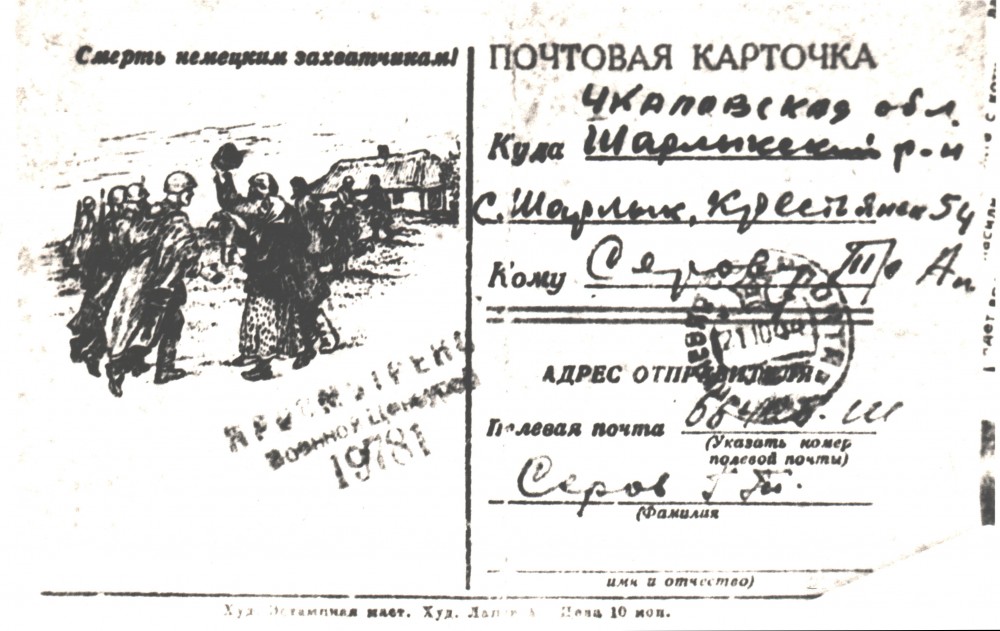 Смерть немецким захватчикам!
ПОЧТОВАЯ КАРТОЧКА
Чкаловская обл.
Куда Шарлыкский р-н
с. Шарлык, Крестьянск 54
Кому Серову
21 10 44
АДРЕС ОТПРАВИТЕЛЯ
Полевая почта
(Указать номер
полевой почты)
Серов Г Т.
(Фамилия
имя и отчество)
ПРОСМОТРЕНО
Военной Цензурой
19781
Худ. Эстампная маст. Худ. Цена 10 коп.